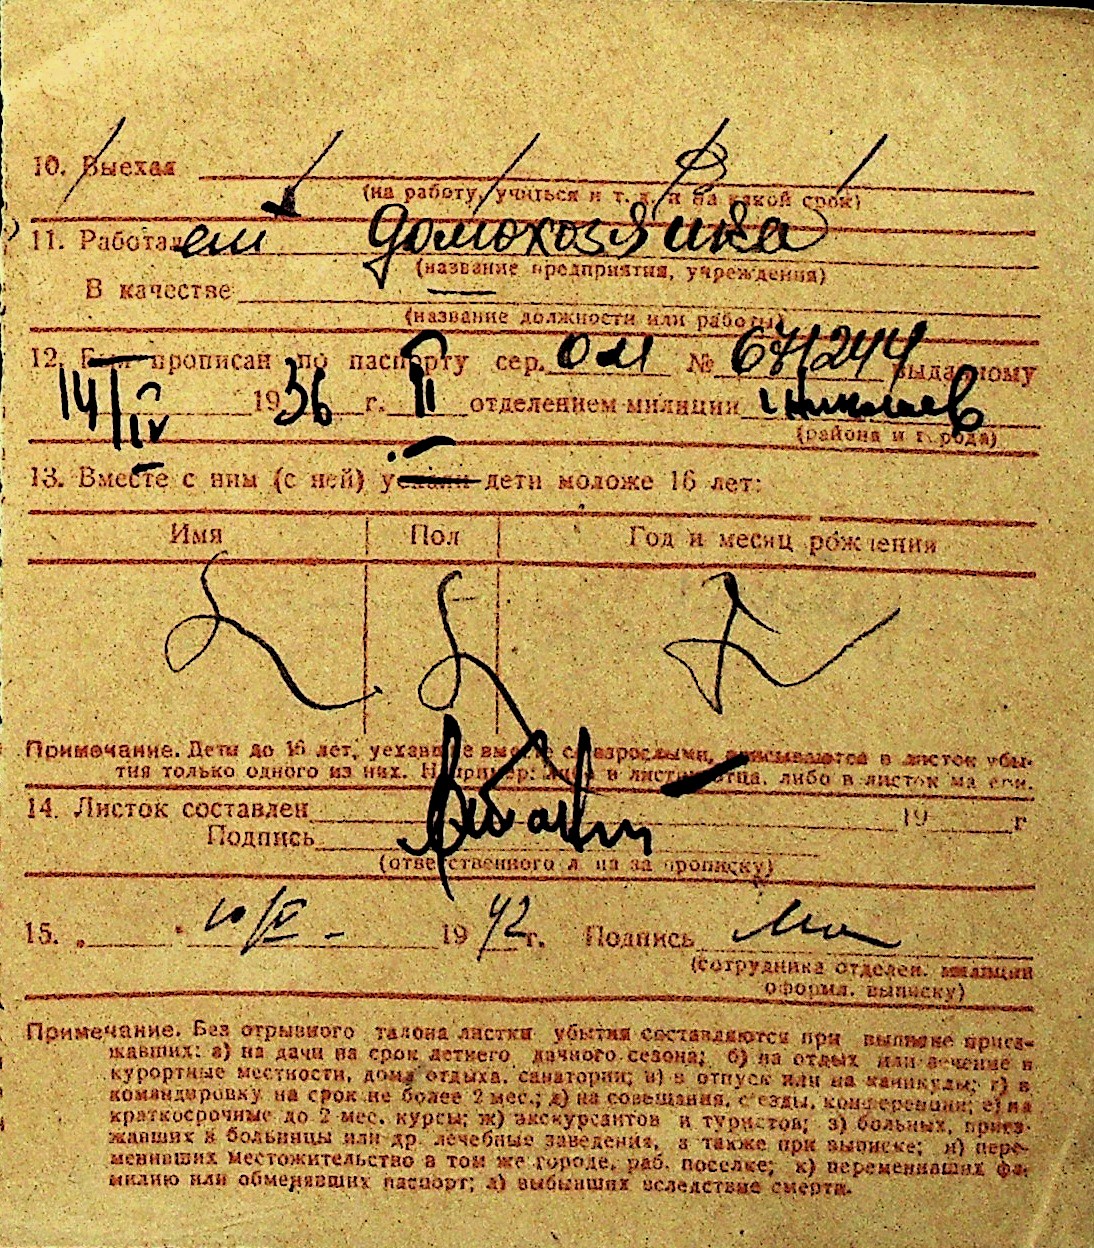 10. Выехал
(на работу, учиться и т. д. и на какой срок)
11. Работал домохозяйка
(название предприятия, учреждения)
В качестве —
(название должности или работы)
12. Был прописан по паспорту сер. № 671244 выданному
14/IV 1936 г. II отделением милиции г. Николаев
(района и города)
13. Вместе с ним (с ней) уехали дети моложе 16 лет:
Имя Пол Год и месяц рождения
Примечание. Дети до 16 лет, уехавшие вместе с взрослыми, вписываются в листок убы-
тия только одного из них. Например: либо в листок отца, либо в листок матери.
14. Листок составлен 19 г
Подпись
(ответственного лица за прописку)
15. „ " 10/V - 1942 г. Подпись
(сотрудника отделен. милиции
оформл. выписку)
Примечание. Без отрывного талона листки убытия составляются при выписке приез-
жавших: а) на дачи на срок летнего дачного сезона; б) на отдых или лечение в
курортные местности, дома отдыха, санатории; в) в отпуск или на каникулы; г) в
командировку на срок не более 2 мес.; д) на совещания, с'езды, конференции; е) на
краткосрочные до 2 мес. курсы; ж) экскурсантов и туристов; з) больных, приез-
жавших в больницы или др. лечебные заведения, а также при выписке; и) пере-
менивших местожительство в том же городе, раб. поселке; к) переменивших фа-
милию или обменявших паспорт; л) выбывших вследствие смерти.